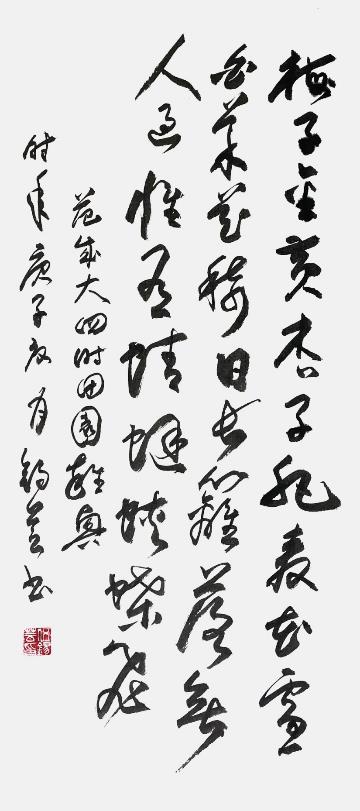 梅子金黄杏子肥麦花雪
白菜花稀日长籬落无
人过惟有蜻蜓蛱蝶飞
范成大四时田园雜興
时年庚子夏月 书